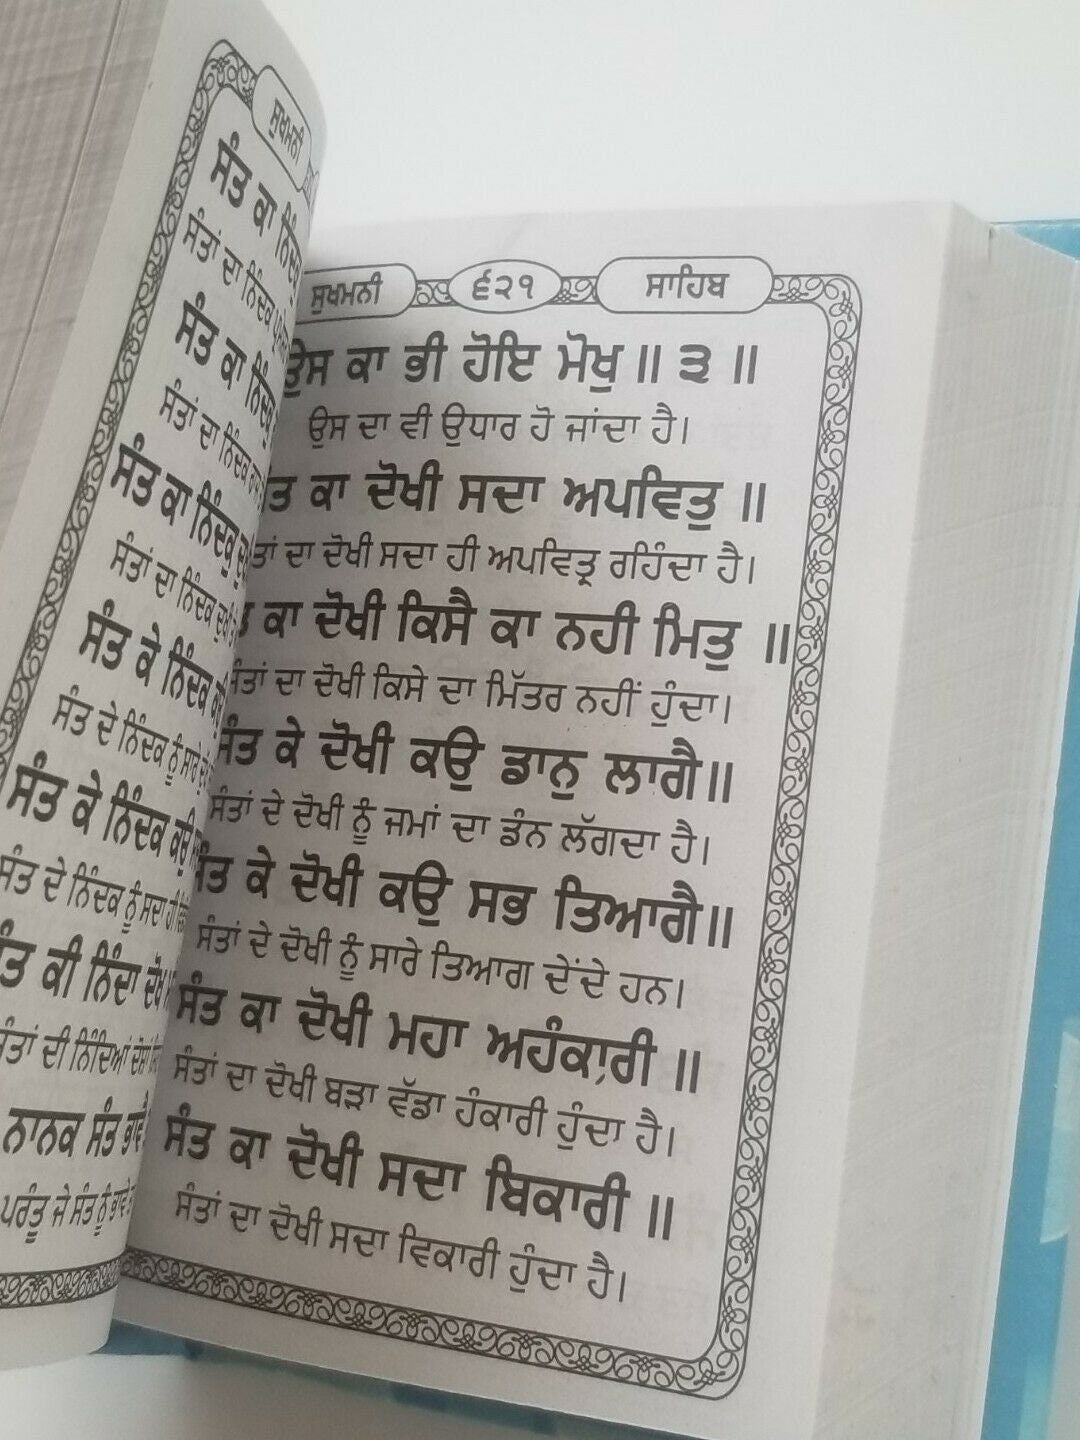 ਸੁਖਮਨੀ
ਸੰਤ ਕਾ ਨਿੰਦਕੁ
ਸੰਤਾਂ ਦਾ ਨਿੰਦਕ
ਸੰਤ ਕਾ ਨਿੰਦਕੁ
ਸੰਤਾਂ ਦਾ ਨਿੰਦਕ
ਸੰਤ ਕਾ ਨਿੰਦਕੁ
ਸੰਤਾਂ ਦਾ ਨਿੰਦਕ
ਸੰਤ ਕੇ ਨਿੰਦਕ
ਸੰਤ ਦੇ ਨਿੰਦਕ ਨੂੰ ਸਾਰੇ
ਸੰਤ ਕੇ ਨਿੰਦਕ ਕਉ
ਸੰਤ ਦੇ ਨਿੰਦਕ ਨੂੰ ਸਦਾ ਹੀ
ਸੰਤ ਕੀ ਨਿੰਦਾ ਦੋਖ
ਸੰਤਾਂ ਦੀ ਨਿੰਦਿਆਂ ਦੋਸ਼ਾਂ
ਨਾਨਕ ਸੰਤ ਭਾਵੈ
ਪਰੰਤੂ ਜੇ ਸੰਤ ਨੂੰ ਭਾਵੇ
ਸੁਖਮਨੀ ੬੨੧ ਸਾਹਿਬ
ਉਸ ਕਾ ਭੀ ਹੋਇ ਮੋਖੁ ॥ ੩ ॥
ਉਸ ਦਾ ਵੀ ਉਧਾਰ ਹੋ ਜਾਂਦਾ ਹੈ।
ਕਾ ਦੋਖੀ ਸਦਾ ਅਪਵਿਤੁ ॥
ਦਾ ਦੋਖੀ ਸਦਾ ਹੀ ਅਪਵਿਤ੍ਰ ਰਹਿੰਦਾ ਹੈ।
ਕਾ ਦੋਖੀ ਕਿਸੈ ਕਾ ਨਹੀ ਮਿਤੁ ॥
ਸੰਤਾਂ ਦਾ ਦੋਖੀ ਕਿਸੇ ਦਾ ਮਿੱਤਰ ਨਹੀਂ ਹੁੰਦਾ।
ਸੰਤ ਕੇ ਦੋਖੀ ਕਉ ਡਾਨੁ ਲਾਗੈ॥
ਸੰਤਾਂ ਦੇ ਦੋਖੀ ਨੂੰ ਜਮਾਂ ਦਾ ਡੰਨ ਲੱਗਦਾ ਹੈ।
ਸੰਤ ਕੇ ਦੋਖੀ ਕਉ ਸਭ ਤਿਆਗੈ॥
ਸੰਤਾਂ ਦੇ ਦੋਖੀ ਨੂੰ ਸਾਰੇ ਤਿਆਗ ਦੇਂਦੇ ਹਨ।
ਸੰਤ ਕਾ ਦੋਖੀ ਮਹਾ ਅਹੰਕਾਰੀ ॥
ਸੰਤਾਂ ਦਾ ਦੋਖੀ ਬੜਾ ਵੱਡਾ ਹੰਕਾਰੀ ਹੁੰਦਾ ਹੈ।
ਸੰਤ ਕਾ ਦੋਖੀ ਸਦਾ ਬਿਕਾਰੀ ॥
ਸੰਤਾਂ ਦਾ ਦੋਖੀ ਸਦਾ ਵਿਕਾਰੀ ਹੁੰਦਾ ਹੈ।